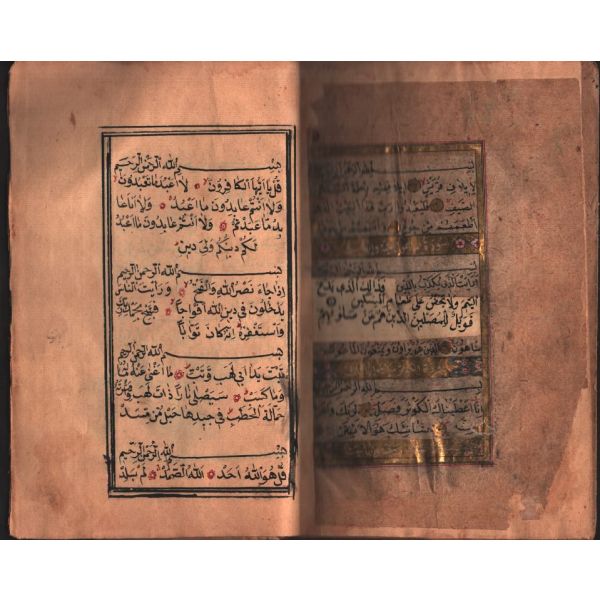 بسم الله الرحمن الرحيم
لايلاف قريش ايلافهم
بسم الله الرحمن الرحيم
ارايت الذى يكذب بالدين فذلك الذى يدع
اليتيم ولا يحض على طعام المسكين
فويل للمصلين الذين هم عن صلاتهم
ساهون الذين هم يراون ويمنعون الماعون
بسم الله الرحمن الرحيم
انا اعطيناك الكوثر فصل لربك وانحر
ان شانئك هو الابتر
بسم الله الرحمن الرحيم
قل يا ايها الكافرون لا اعبد ما تعبدون
ولا انتم عابدون ما اعبد ولا انا عا
بد ما عبدتم ولا انتم عابدون ما اعبد
لكم دينكم ولى دين
بسم الله الرحمن الرحيم
اذا جاء نصر الله والفتح ورايت الناس
يدخلون فى دين الله افواجا فسبح بحمد ربك
واستغفره انه كان توابا
بسم الله الرحمن الرحيم
تبت يدا ابى لهب وتب ما اغنى عنه ماله
وما كسب سيصلى نارا ذات لهب وامراته
حمالة الحطب فى جيدها حبل من مسد
بسم الله الرحمن الرحيم
قل هو الله احد الله الصمد لم يلد